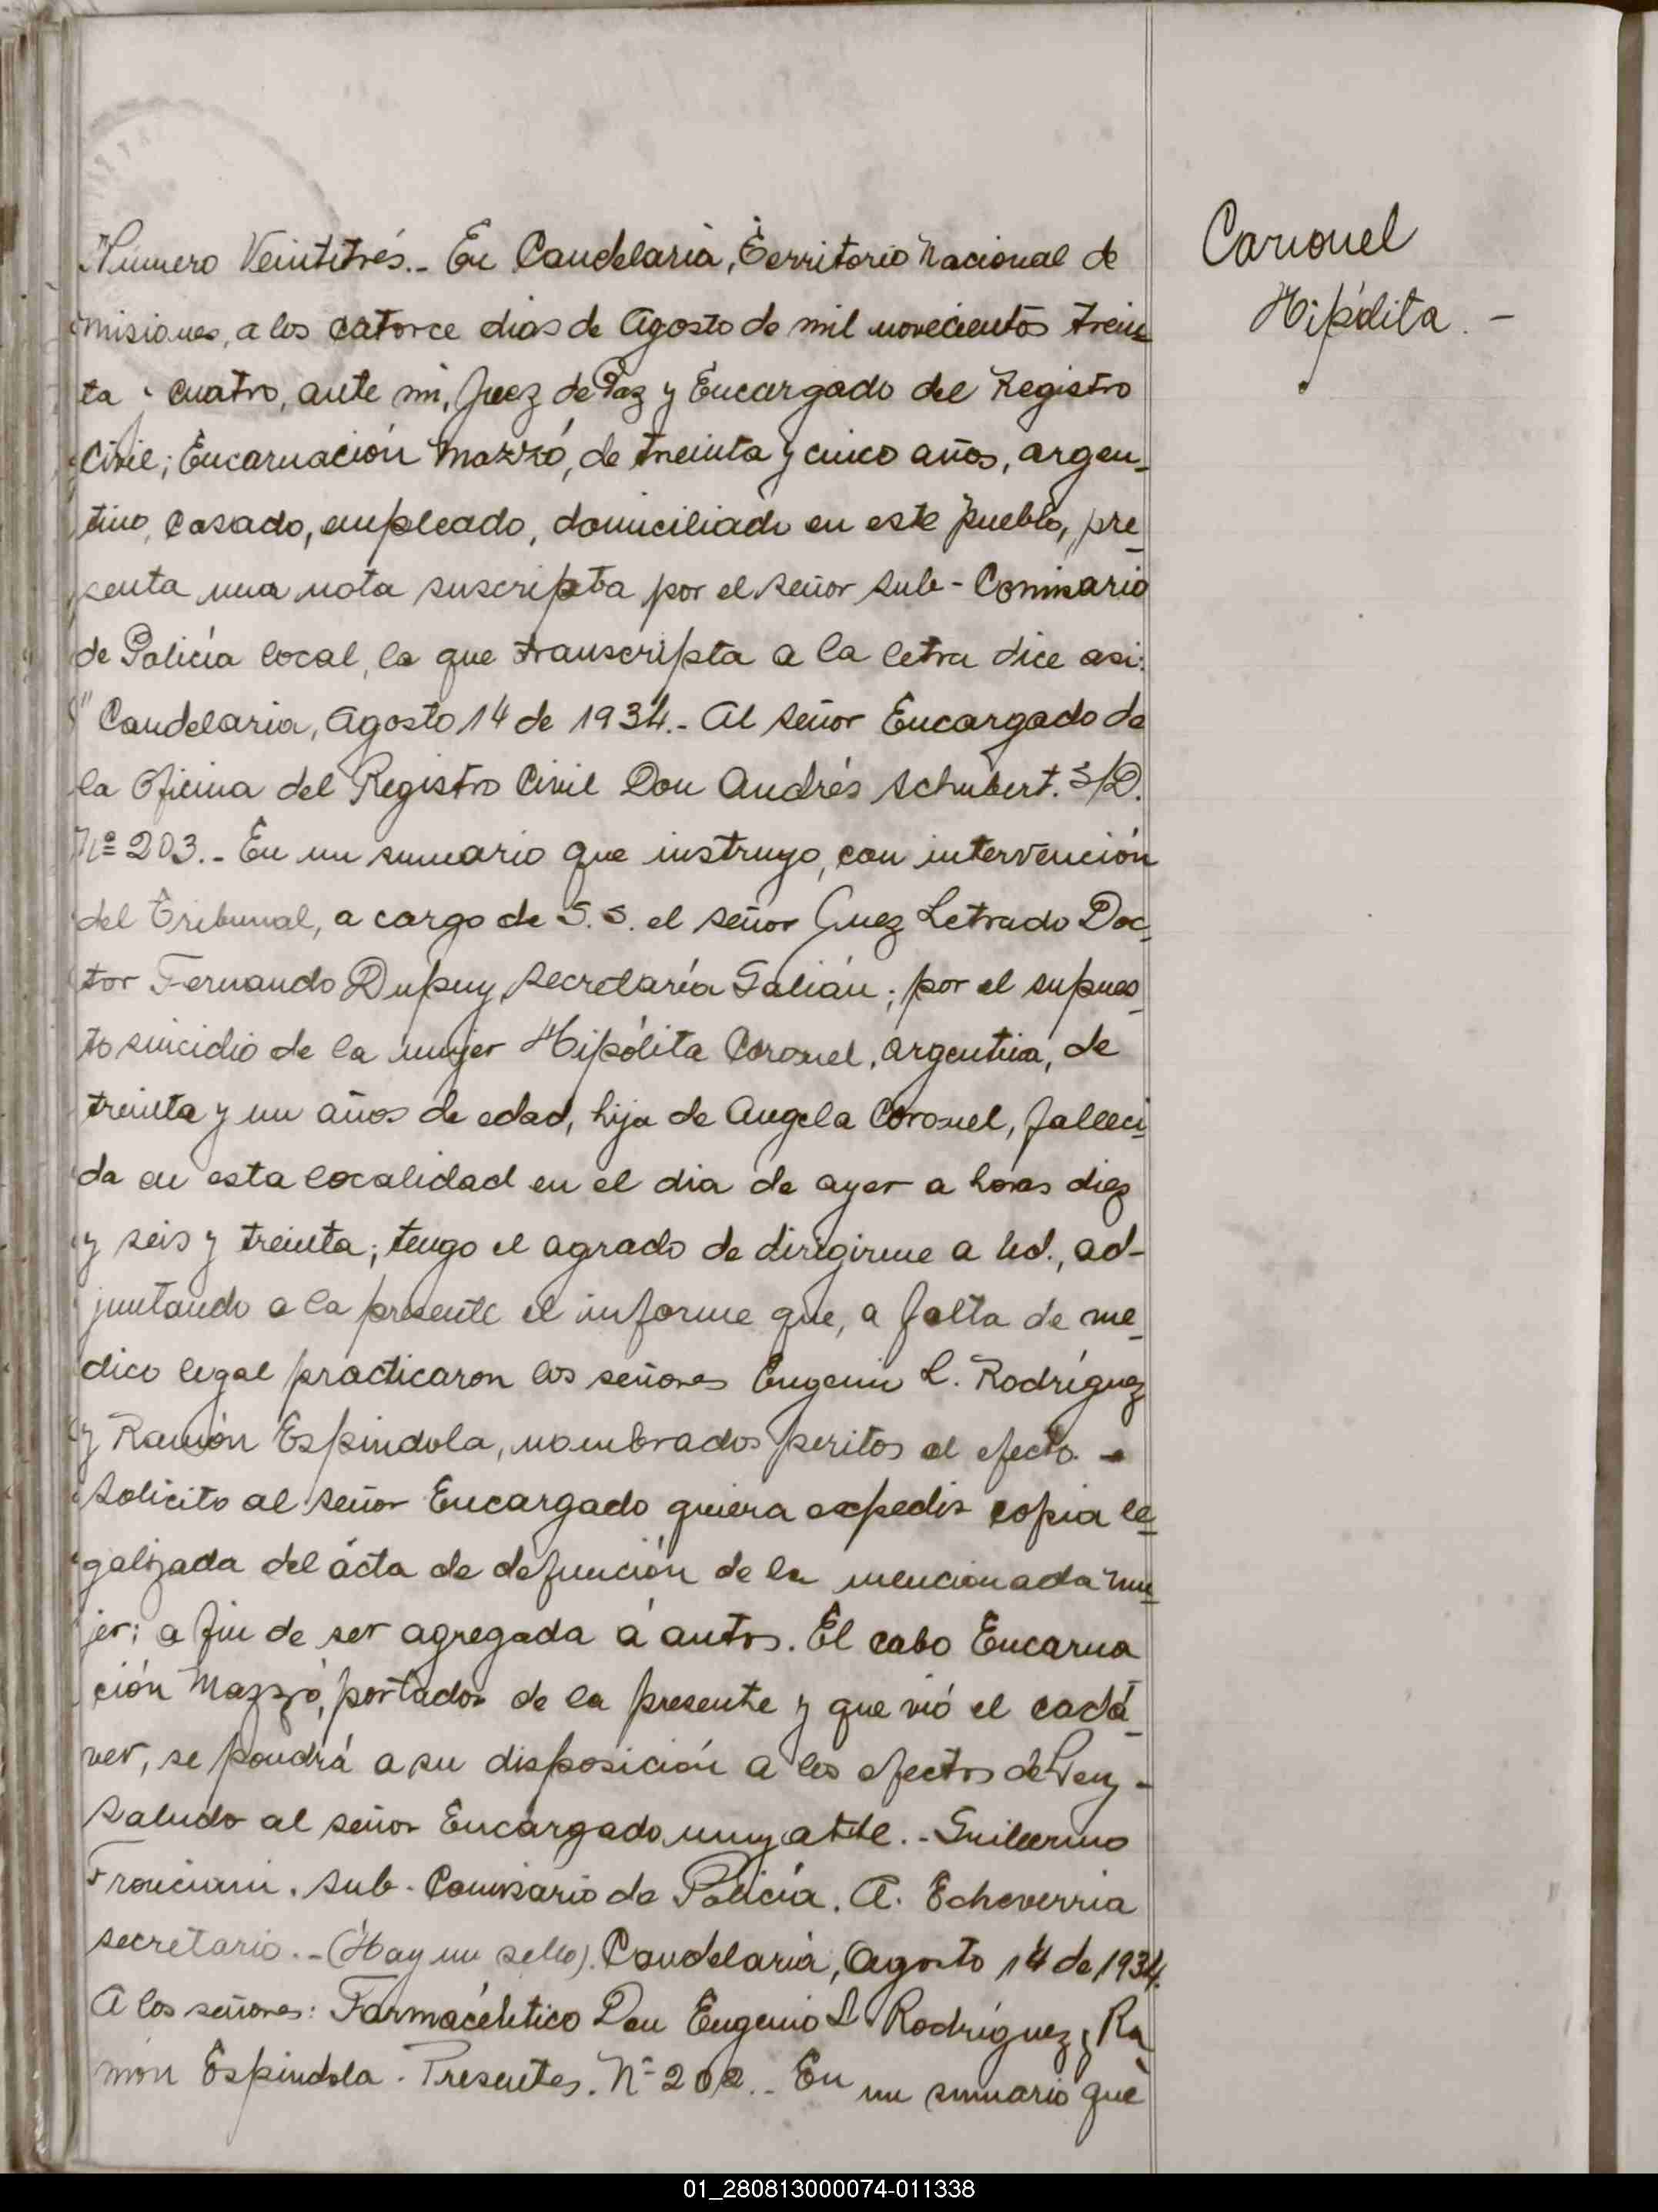 Número Veintitrés.- En Candelaria, Territorio Nacional de
Misiones, a los catorce dias de Agosto de mil novecientos trein-
ta y cuatro, ante mi, Juez de Paz y Encargado del Registro
Civil; Encarnación Mazzó, de treinta y cinco años, argen-
tino, casado, empleado, domiciliado en este pueblo, pre-
senta una nota suscripta por el señor Sub-Comisario
de Policía local, la que transcripta a la letra dice asi:
" Candelaria, Agosto 14 de 1934.- Al señor Encargado de
la Oficina del Registro Civil Don Andrés Schubert. S/D.
Nº 203.- En un sumario que instruyo, con intervención
del Tribunal, a cargo de S.S. el señor Juez Letrado Doc-
tor Fernando Dupuy, Secretaría Galián; por el supues-
to suicidio de la mujer Hipólita Coronel, argentina, de
treinta y un años de edad, hija de Angela Coronel, falleci-
da en esta localidad en el dia de ayer a horas diez
y seis y treinta; tengo el agrado de dirigirme a Ud., ad-
juntando a la presente el informe que, a falta de me-
dico legal practicaron los señores Eugenio L. Rodríguez
y Ramón Espíndola, nombrados peritos al efecto.-
Solicito al señor Encargado quiera expedir copia le-
galizada del ácta de defunción de la mencionada mu-
jer; a fin de ser agregada á autos. El cabo Encarna
ción Mazzó, portador de la presente y que vió el cadá-
ver, se pondrá a su disposición a los efectos de Ley-
Saludo al señor Encargado muy atte.- Guillermo
Franciani. Sub-Comisario de Policía. A. Echeverria
secretario.- (Hay un sello). Candelaria, Agosto 14 de 1934.
A los señores: Farmacéutico Don Eugenio L Rodríguez y Ra
món Espindola. Presentes. Nº 202.- En un sumario que
Coronel
Hipólita.-
01_280813000074-011338